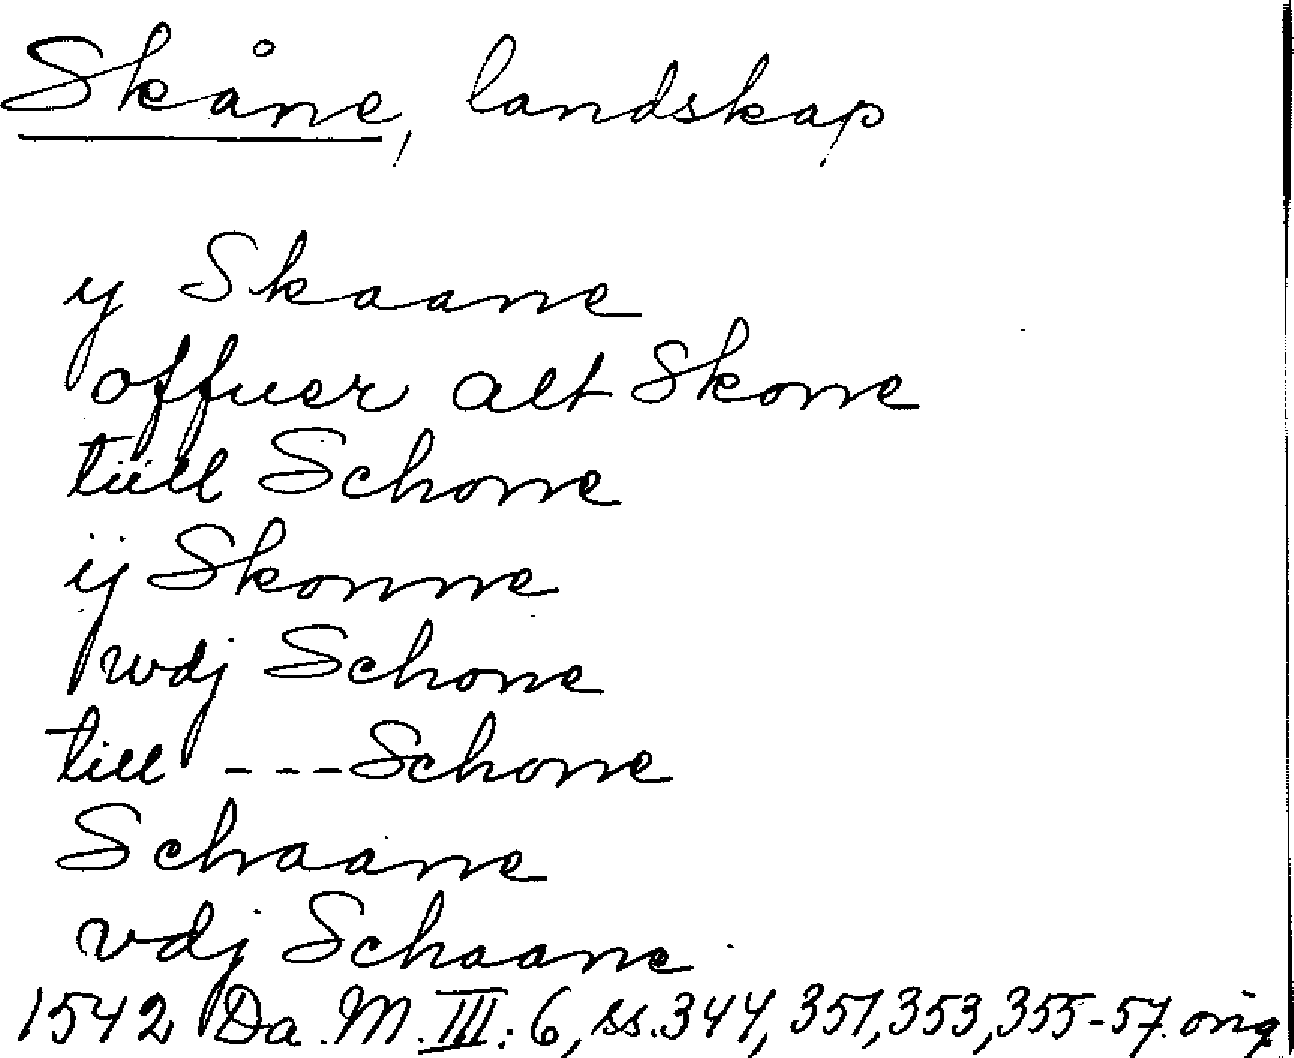 Skåne, landskap
y Skaane
offuer alt Skone
tiill Schone
ij Skonne
wdj Schone
till --- Schone
Schaane
vdj Schaane
1542 Da. M. III: 6, ss. 344, 351, 353, 355-57. orig